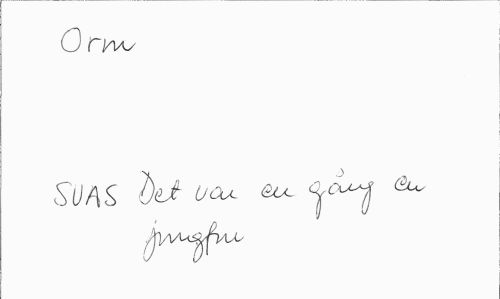 Orm
SUAS Det var en gång en
jungfru